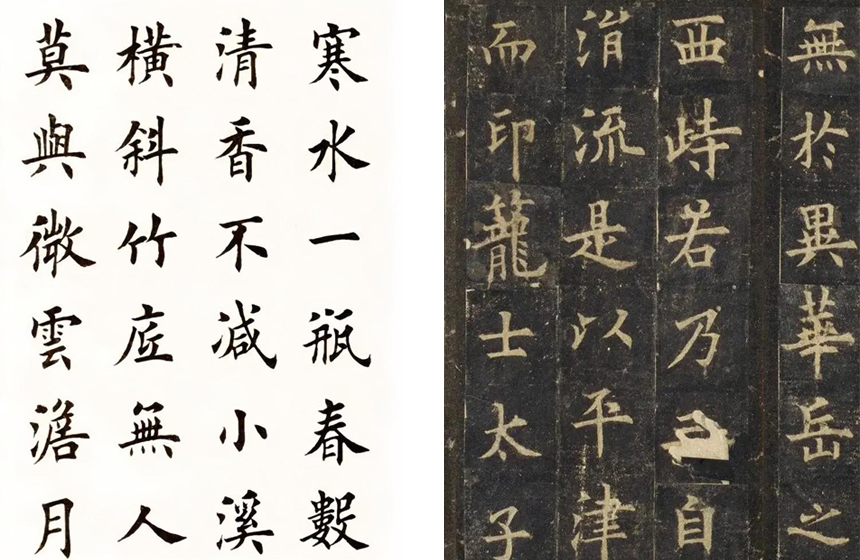 寒水一瓶春數
清香不減小溪
橫斜竹底無人
莫與微雲澹月
無於異華岳之
西峙若乃自
涓流是以平津
而印蘢士太子